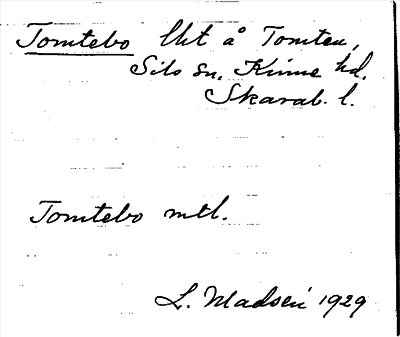 Tomtebo lht å Tomten,
Sils sn, Kinne hd.
Skarab. l.
Tomtebo mtl.
L. Madsén 1929